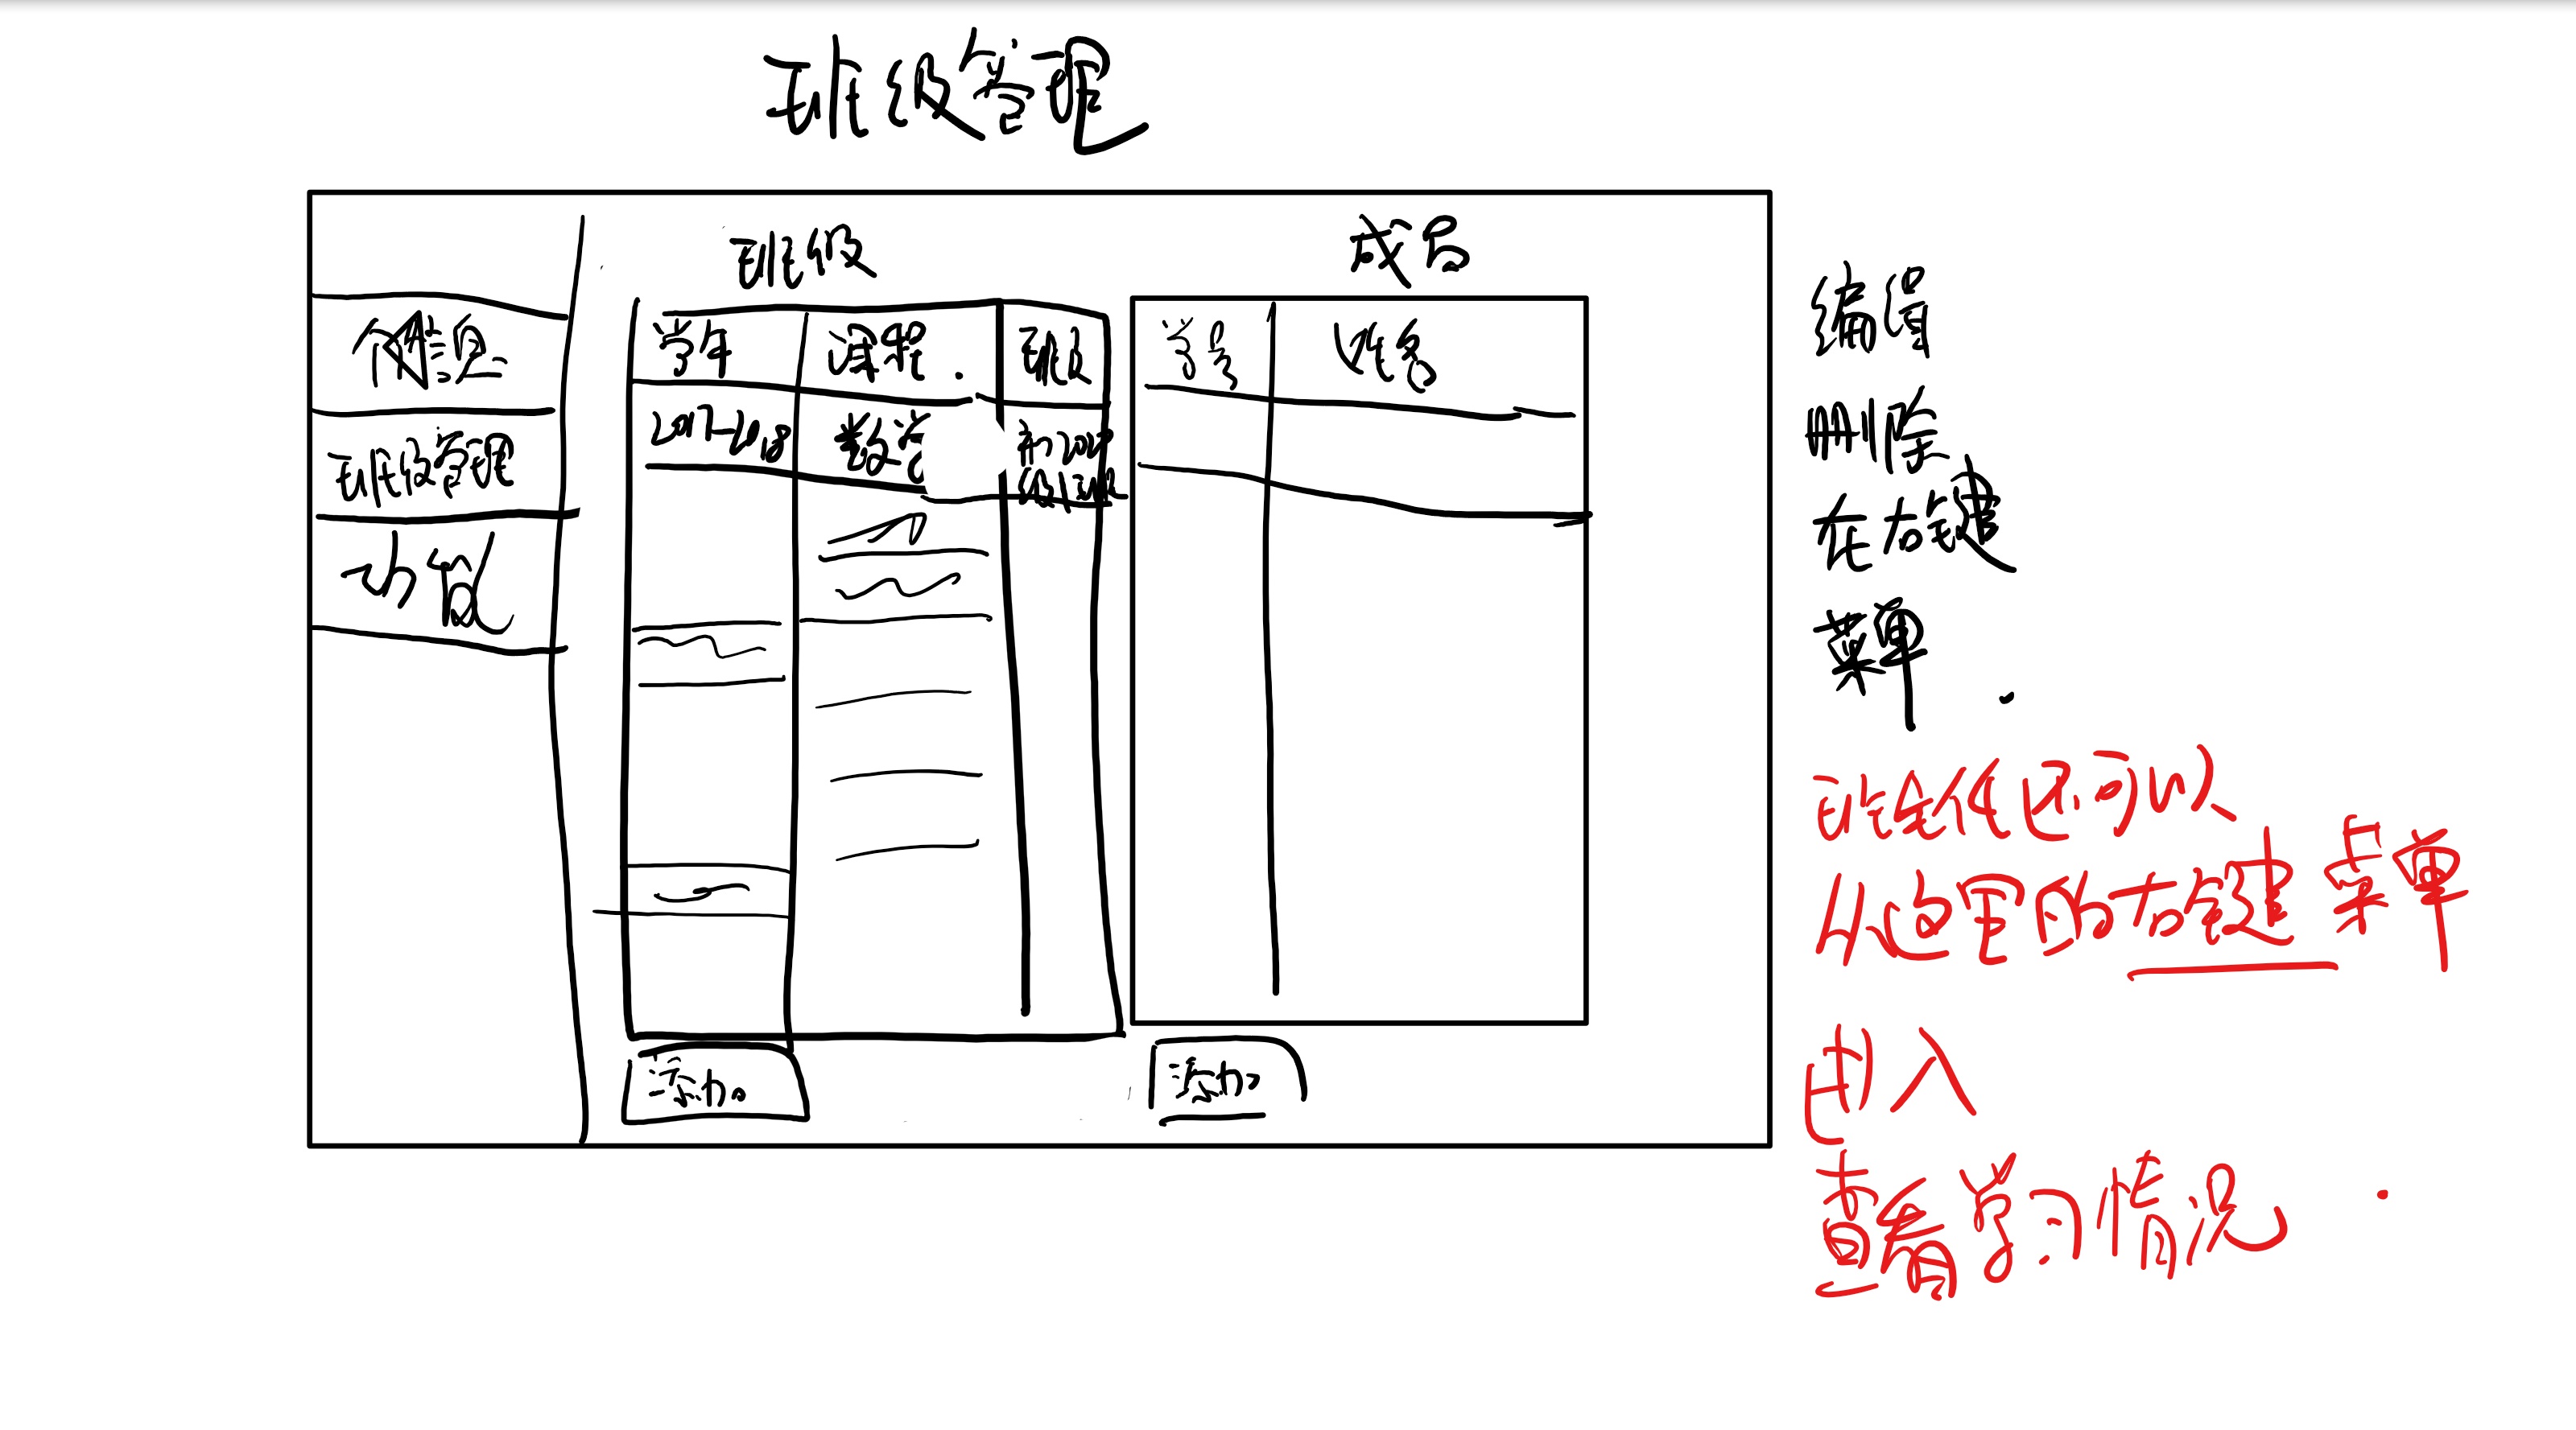 班级管理
个人信息
班级管理
功能
班级
学年 课程 班级
2017-2018 数学
添加
成员
学号 姓名
添加
编辑
删除
在右键
菜单
班主任还可以
从这里的右键菜单
进入
查看学习情况